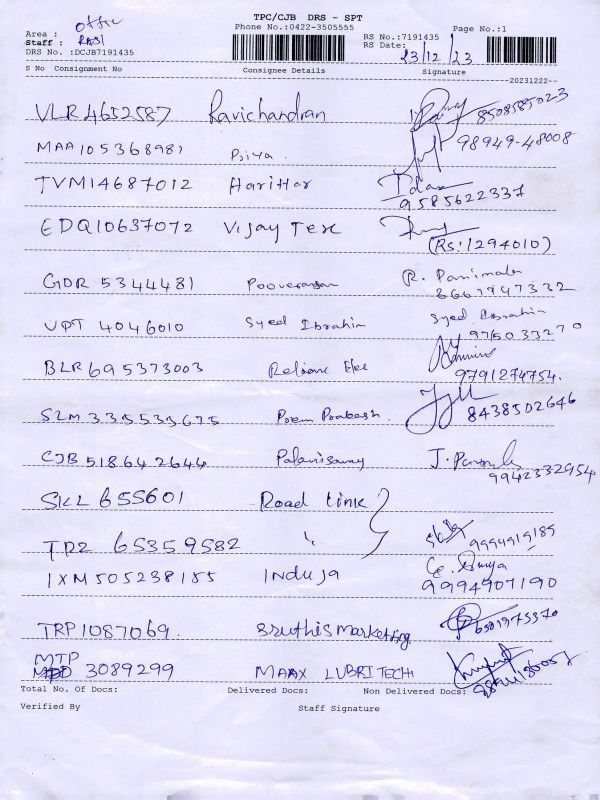 TPC/CJB DRS - SPT
Phone No.:0422-3505555
Area : Office
Staff :
DRS No. :DCJB7191435
RS No.:7191435 Page No.:1
RS Date: 23/12/23
S No Consignment No Consignee Details Signature
--20231222--
VLR 4652587 Ravichandran 8508585023
MAA105368981 Priya. 98949-48008
TVM14687012 Harihar 9585622337
EDQ10637072 Vijay Tex (Rs:1294010)
GDR 5344481 Pooverasan R. Panimala
VPT 4046010 Syed Ibrahim Syed Ibrahim
BLR 695373003 Reliance Elec 9791274754.
SLM 335535675 Prem Prakash. 8438502646
CJB 518642644 Palanisamy 9942332954
SKL 655601 Road Link
TPZ 65359582 " 9994919189
IXM505238155 Induja 9994907190
TRP1087069. Sruthis marketing
MTP 3089299 MAAX LUBRITECH
Total No. Of Docs: Delivered Docs: Non Delivered Docs:
Verified By Staff Signature